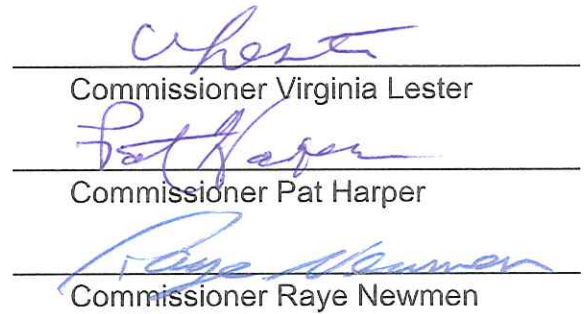 V Lester
Commissioner Virginia Lester
Pat Harper
Commissioner Pat Harper
Raye Newmen
Commissioner Raye Newmen